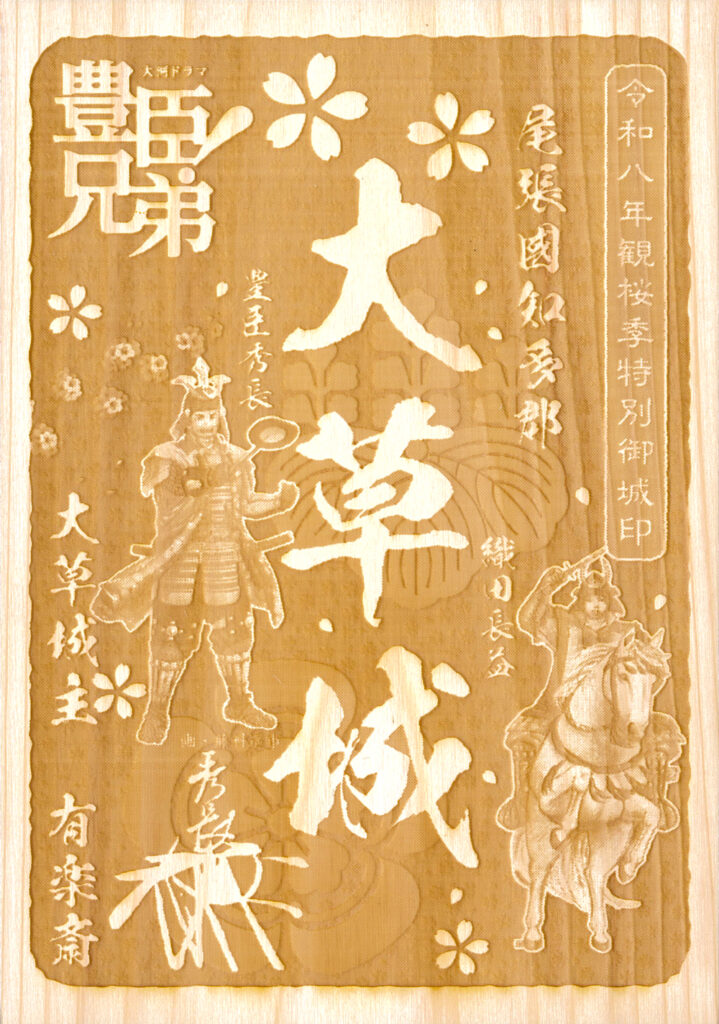 令和八年観桜季特別御城印
尾張國知多郡
大草城
織田長益
豊臣秀長
大河ドラマ
豊臣兄弟!
大草城主 有楽斎
秀長